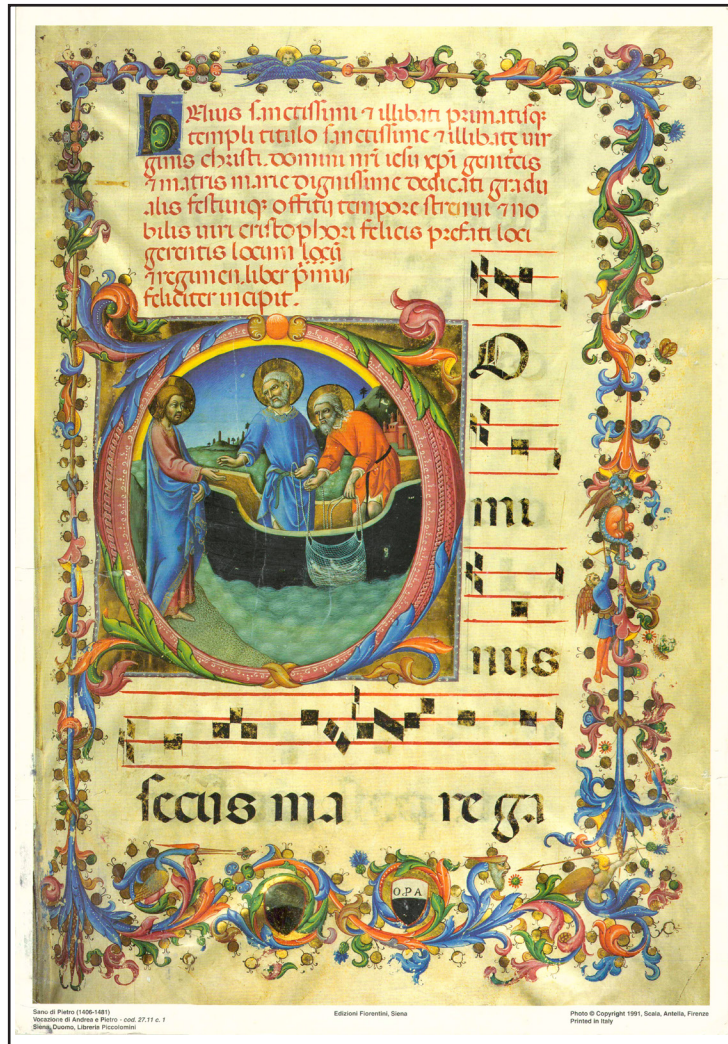 huius sanctissimi ⁊ illibati primatisq̃
templi titulo sanctissime ⁊ illibate uir
ginis christi. domini nr̃i iesu xp̃i genitcis
⁊ matris marie dignissime dedicati gradu
alis festiuiq̃ offitij tempore strenui ⁊ no
bilis uiri cristophori felicis prefati loci
gerentis locum
⁊ regimen. liber p̃mus
feliciter incipit.
D
mi
nus
secus ma re ga
O.P.A
Sano di Pietro (1406-1481)
Vocazione di Andrea e Pietro - cod. 27.11 c. 1
Siena, Duomo, Libreria Piccolomini
Edizioni Fiorentini, Siena
Photo © Copyright 1991, Scala, Antella, Firenze
Printed in Italy